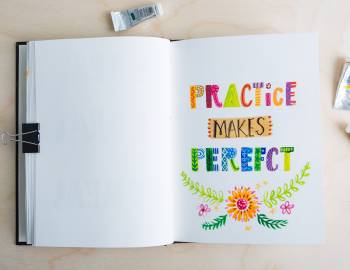 PRACTiCE
MAKES
PEREFCT